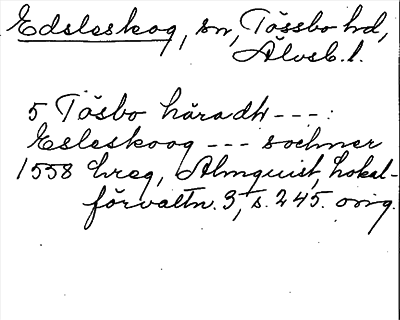 Edsleskog, sn, Tössbo hd,
Älvsb. l.
5 Tösbo häradh ---:
Esleskoog --- sochner
1558 hreg, Almquist, Lokal-
förvaltn. 3, s. 245. orig.